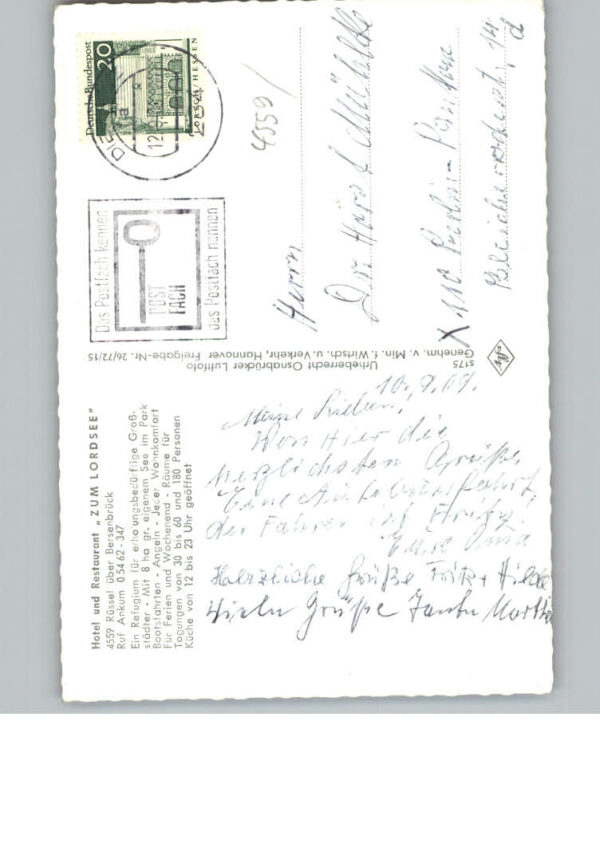 Hotel und Restaurant „ZUM LORDSEE"
4559 Rüssel über Bersenbrück
Ruf Ankum 0 54 62 - 347
Ein Refugium für erholungsbedürftige Groß-
städter - Mit 8 ha gr. eigenem See im Park
Bootsfahrten - Angeln - Jeder Wohnkomfort
Für Ferien und Wochenend - Räume für
Tagungen von 30 bis 60 und 180 Personen
Küche von 12 bis 23 Uhr geöffnet
10.7.69.
Meine Lieben,
Von Hier die
herzlichsten Grüße.
Eine Autobusfahrt,
der Fahrer ist
Eure
Herzliche Grüße Fritz + Hilde
Viele Grüße Tante
S175
Genehm. v. Min. f. Wirtsch. u. Verkehr, Hannover Freigabe-Nr. 26/72/15
Urheberrecht Osnabrücker Luftfoto
Das Postfach kennen
POST
FACH
das Postfach nennen
Deutsche Bundespost
20
LORSCH/HESSEN
4559/
Herrn
Dr. Horst
X 110 Berlin-Pankow
14
d